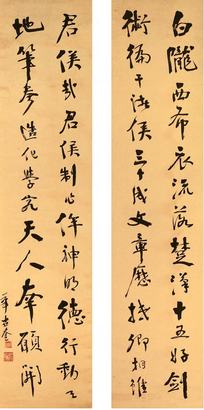 白隴西布衣流落楚漢十五好劍
術徧干諸侯三十成文章歷抵卿相雖
君侯哉君侯制作侔神明德行動天
地筆參造化學究天人幸願開